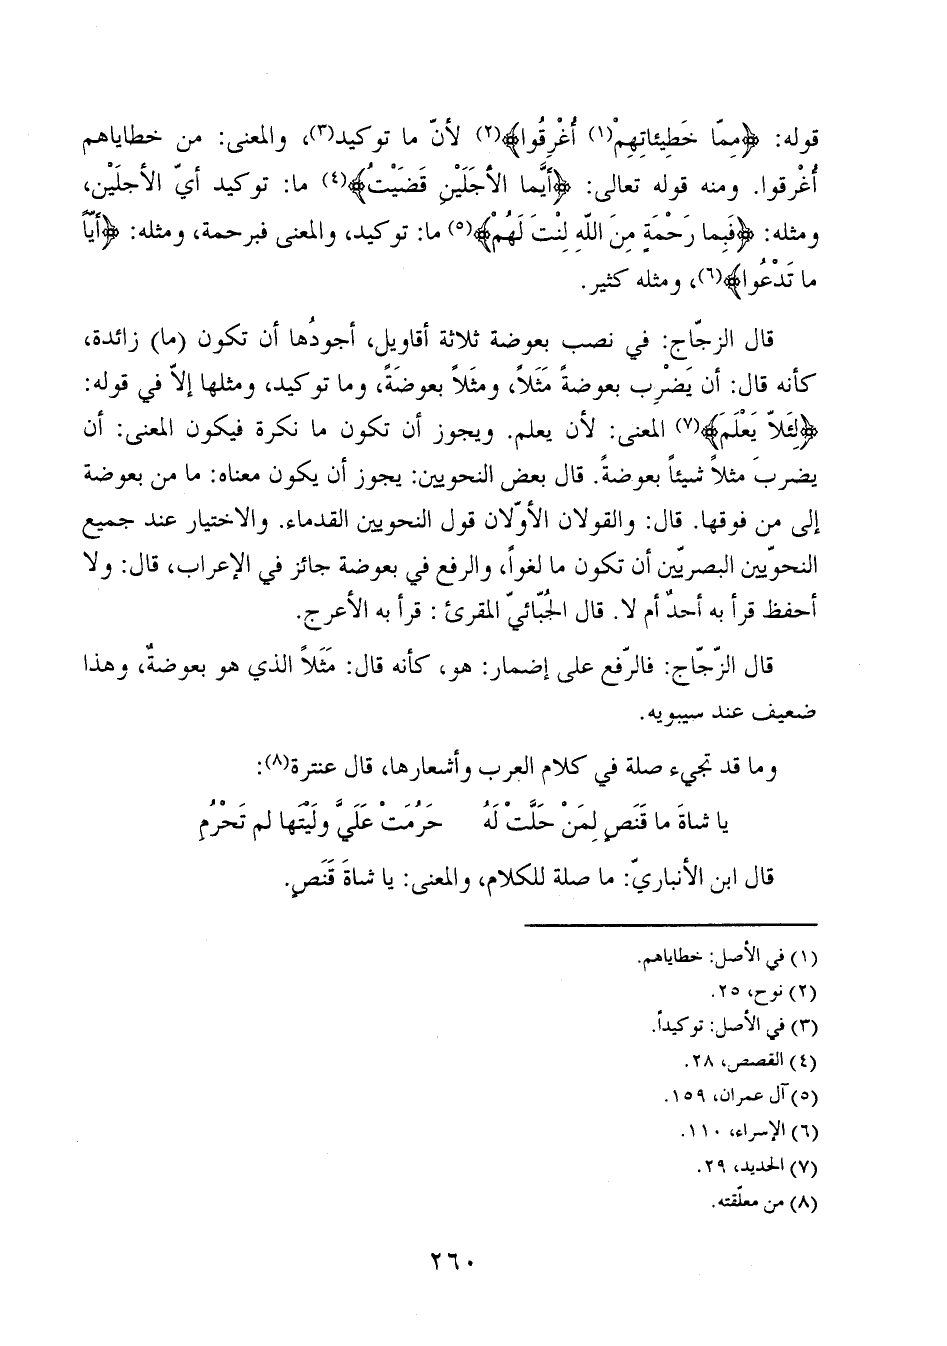 قوله: ﴿مِمّا خَطِيئاتِهِمْ(١) أُغْرِقُوا﴾(٢) لأنّ ما توكيد(٣)، والمعنى: من خطاياهم
أُغْرقوا. ومنه قوله تعالى: ﴿أَيَّما الأَجَلَيْنِ قَضَيْتُ﴾(٤) ما: توكيد أيّ الأجلَيْن،
ومثله: ﴿فَبِما رَحْمَةٍ مِنَ اللّهِ لِنْتَ لَهُمْ﴾(٥) ما: توكيد، والمعنى فبرحمة، ومثله: ﴿أيّاً
ما تَدْعُوا﴾(٦)، ومثله كثير.
قال الزجّاج: في نصب بعوضة ثلاثة أقاويل، أجودُها أن تكون (ما) زائدة،
كأنه قال: أن يَضْرِب بعوضةً مَثَلاً، ومثَلاً بعوضَةً، وما توكيد، ومثلها إلاّ في قوله:
﴿لِئَلاّ يَعْلَمَ﴾(٧) المعنى: لأن يعلم. ويجوز أن تكون ما نكرة فيكون المعنى: أن
يضربَ مثلاً شيئاً بعوضةً. قال بعض النحويين: يجوز أن يكون معناه: ما من بعوضة
إلى من فوقها. قال: والقولان الأوّلان قول النحويين القدماء. والاختيار عند جميع
النحوّيين البصريّين أن تكون ما لغواً، والرفع في بعوضة جائز في الإعراب، قال: ولا
أحفظ قرأ به أحدٌ أم لا. قال الجُبّائيّ المقرئ: قرأ به الأعرج.
قال الزّجّاج: فالرّفع على إضمار: هو، كأنه قال: مَثَلاً الذي هو بعوضةٌ، وهذا
ضعيف عند سيبويه.
وما قد تجيء صلة في كلام العرب وأشعارها، قال عنترة(٨):
يا شاةَ ما قَنَصٍ لِمَنْ حَلَّتْ لَهُ حَرُمَتْ عَلَيَّ ولَيْتَها لم تَحْرُمِ
قال ابن الأنباريّ: ما صلة للكلام، والمعنى: يا شاةَ قَنَصٍ.
(١) في الأصل: خطاياهم.
(٢) نوح، ٢٥.
(٣) في الأصل: توكيداً.
(٤) القصص، ٢٨.
(٥) آل عمران، ١٥٩.
(٦) الإسراء، ١١٠.
(٧) الحديد، ٢٩.
(٨) من معلّقته.
٢٦٠